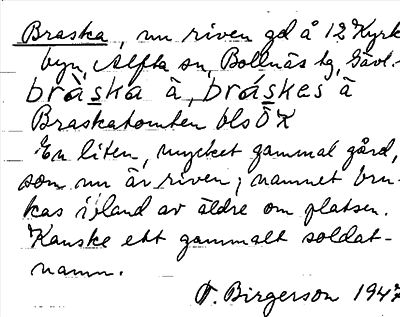 Braska, nu riven gd å 12 Kyrk
byn, Alfta sn, Bollnäs tg, Gävl.
bràska à, bráskes à
Braskatomten bls ÖK
En liten, mycket gammal gård,
som nu är riven; namnet bru-
kas ibland av äldre om platsen.
Kanske ett gammalt soldat-
namn.
Birgerson 1947